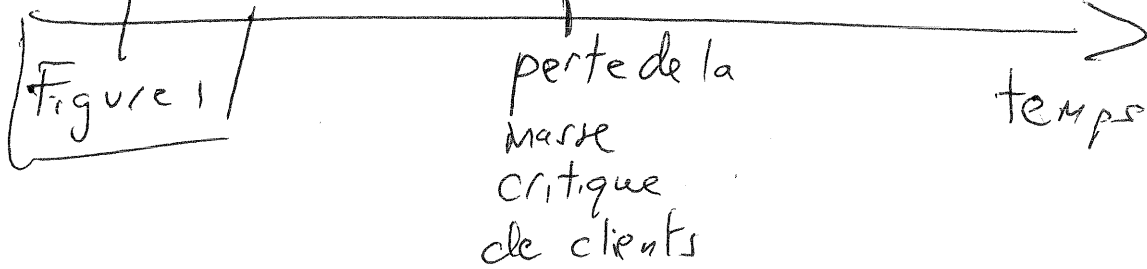 Figure 1
perte de la
masse
critique
de clients
temps